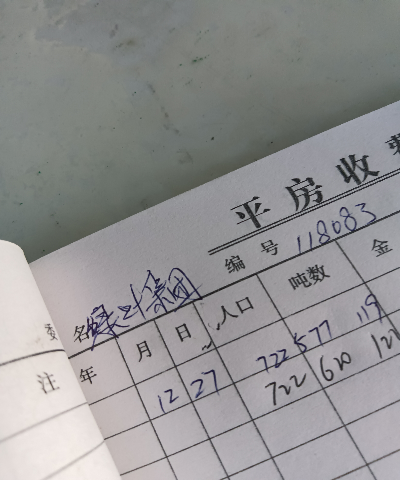 平房收
编号 118083
名 集团
年 月 日 人口 吨数 金
注
12 27 722 577 119
722 620